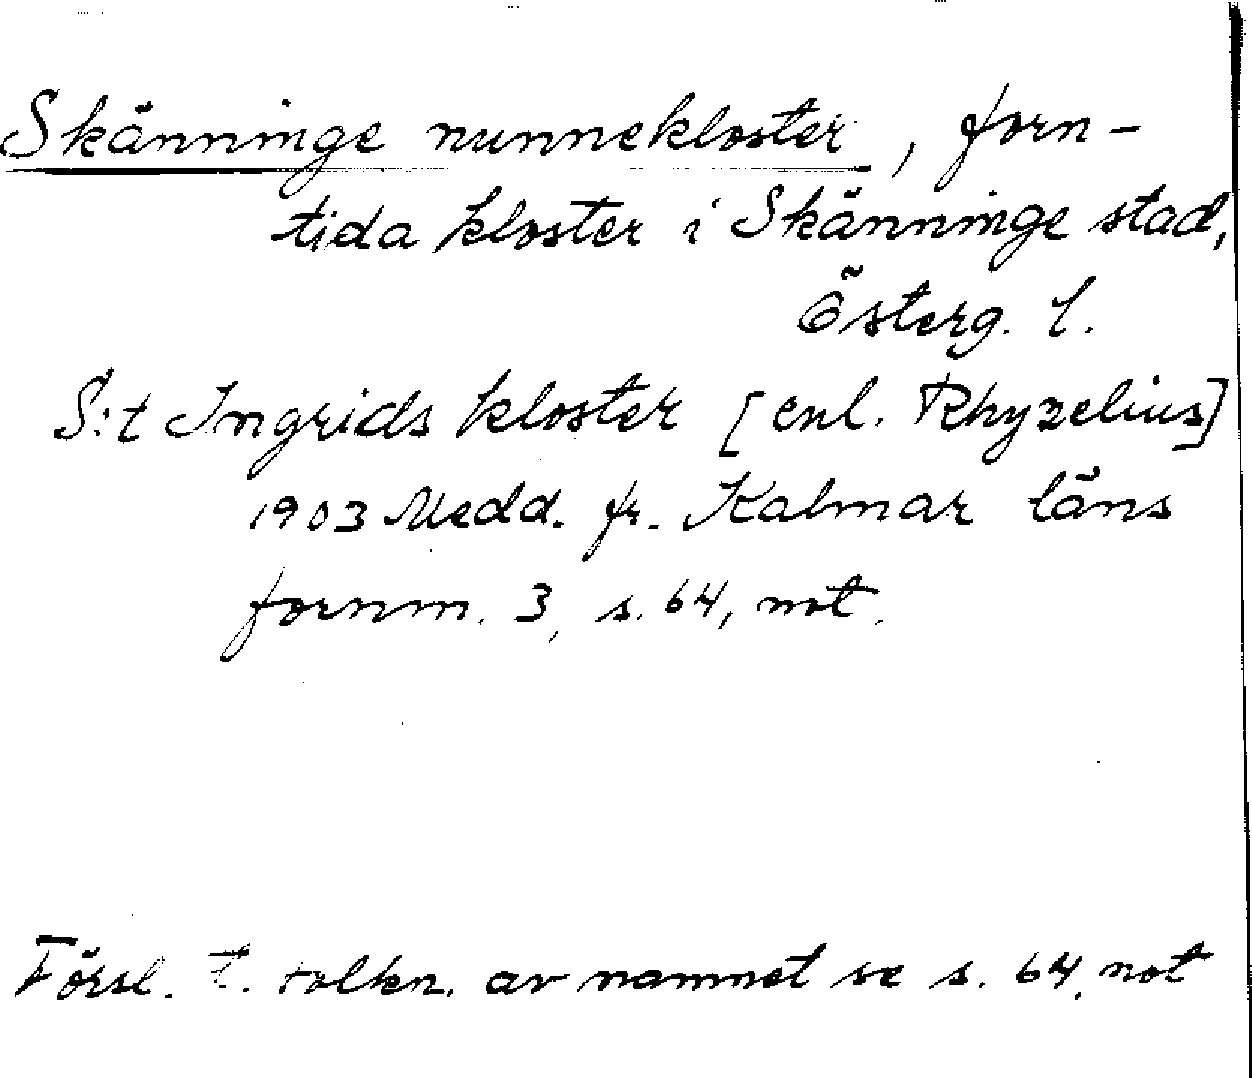 Skänninge nunnekloster, forn-
tida kloster i Skänninge stad,
Österg. l.
S:t Ingrids kloster [enl. Rhyzelius]
1903 Medd. fr. Kalmar läns
fornm. 3, s. 64, not.
Försl. t. tolkn. av namnet se s. 64, not